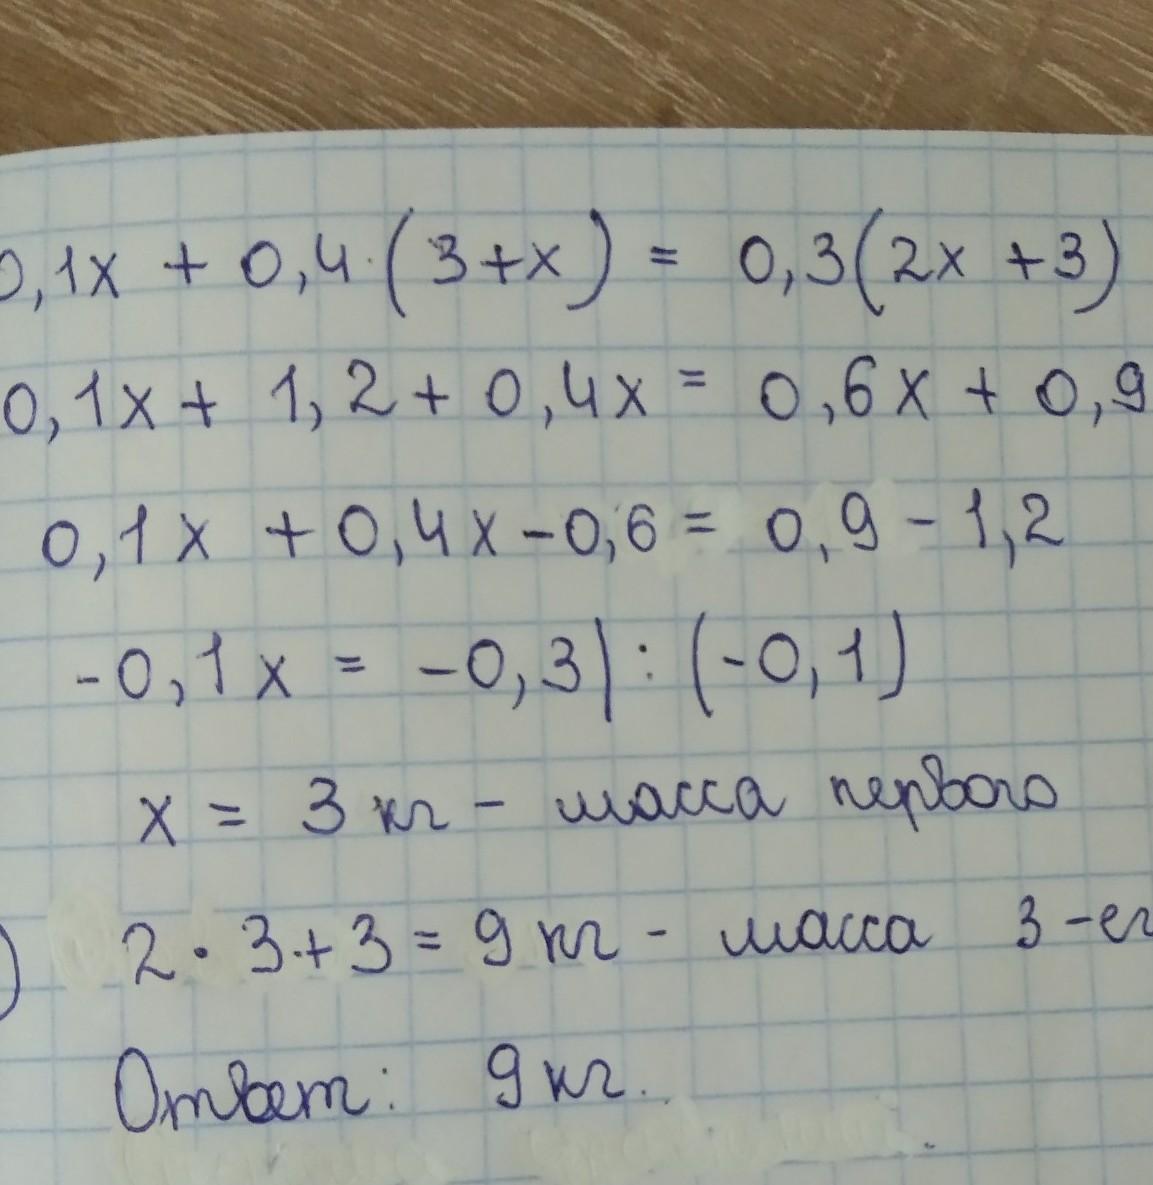 0,1x + 0,4·(3+x) = 0,3(2x+3)
0,1x + 1,2 + 0,4x = 0,6x + 0,9
0,1x + 0,4x - 0,6 = 0,9 - 1,2
-0,1x = -0,3 | : (-0,1)
x = 3 кг - масса первого
) 2·3+3 = 9 кг - масса 3-ег
Ответ: 9 кг.